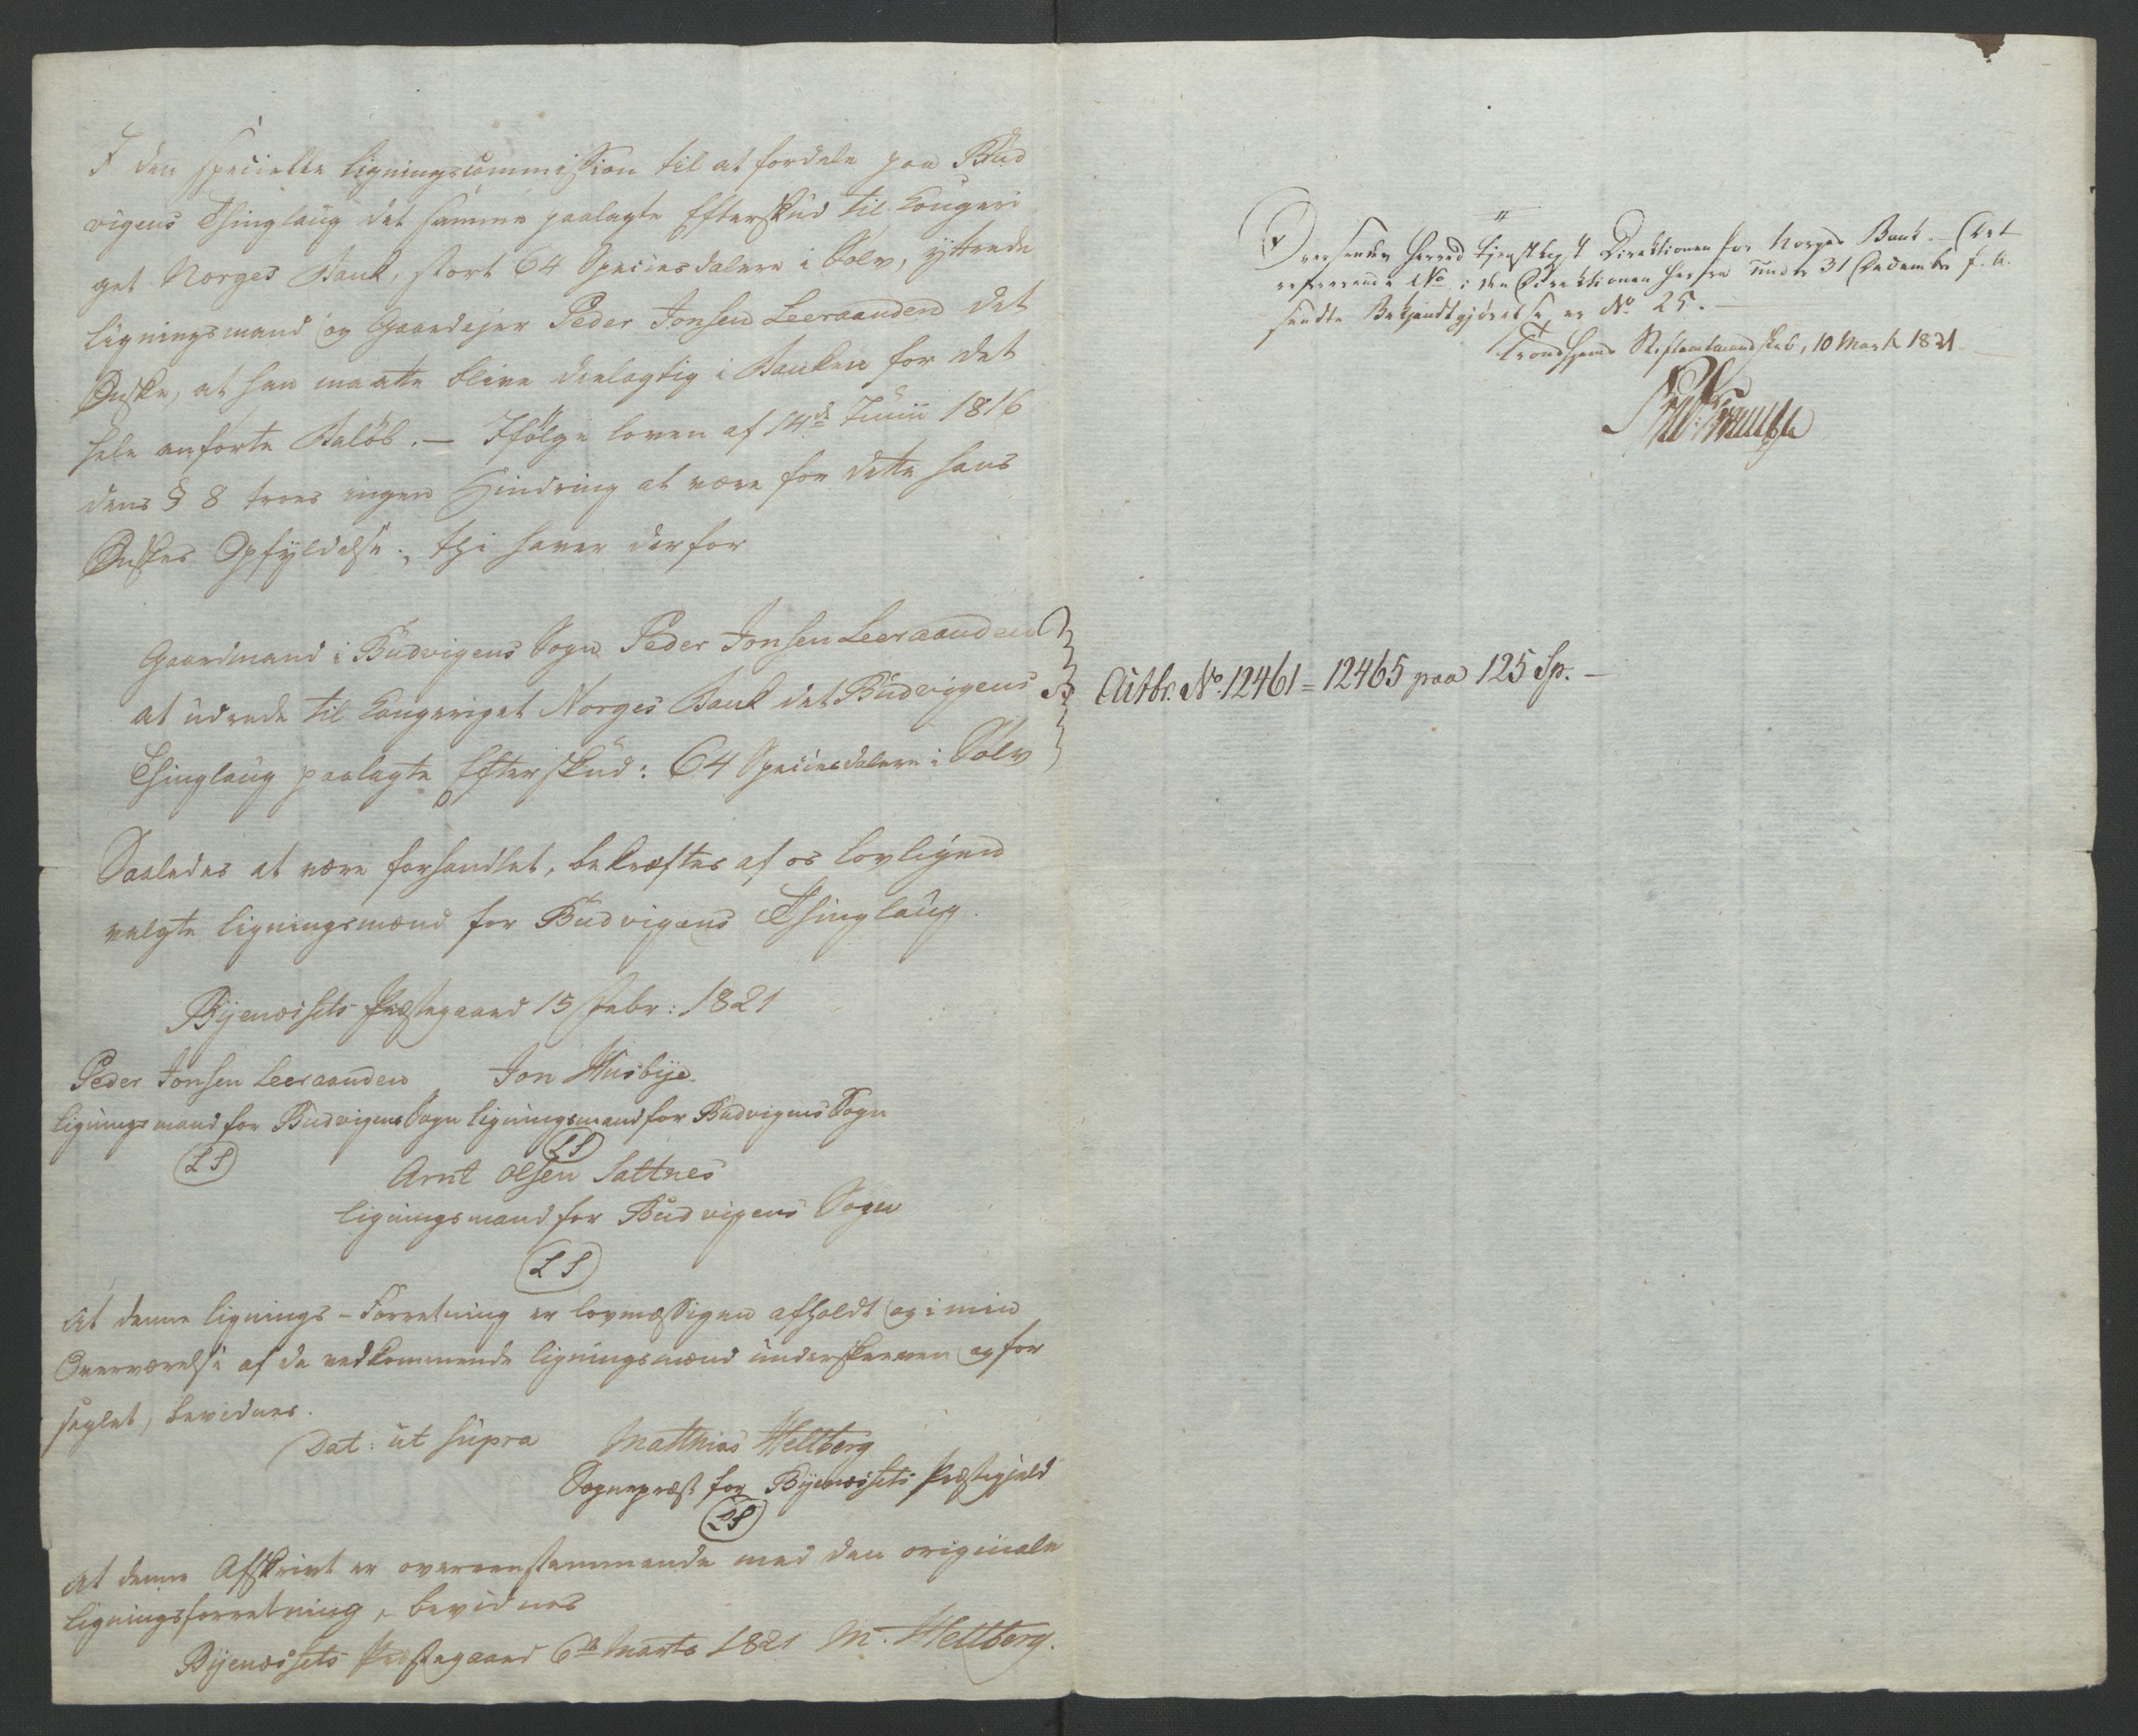 I den specielle Ligningscommission til at fordele paa Bud
vigens Thinglaug det samme paalagte Efterskud til Kongeri
get Norges Bank, stort 64 Speciesdalere i Sølv, yttrede
Ligningsmand og Gaardejer Peder Jonsen Leeraanden det
Ønske, at han maatte blive deelagtig i Banken for det
hele anførte Beløb. — Ifølge Loven af 14de Junii 1816
dens § 8 troes ingen Hindring at være for dette hans
Ønskes Opfyldelse; thi haver derfor
Gaardmand i Budvigens Sogn Peder Jonsen Leeraanden
at udrede til Kongeriget Norges Bank det Budvigens
Thinglaug paalagte Efterskud: 64 Speciesdalere i Sølv
Saaledes at være forhandlet, bekræftes af os lovligen
valgte Ligningsmænd for Budvigens Thinglaug.
Byenæssets Præstegaard 15 Febr: 1821
Peder Jonsen Leeraanden Jon Husbye
Ligningsmand for Budvigens Sogn Ligningsmand for Budvigens Sogn
LS LS
Arnt Olsen Saltnes
Ligningsmand for Budvigens Sogn
LS
At denne Lignings-Forretning er lovmæssigen afholdt og i min
Overværelse af de vedkommende Ligningsmænd underskreven og for
seglet, bevidnes.
Dat: ut supra Matthias Heltberg
Sognepræst for Byenæssets Præstegjeld
LS
At denne Afskrivt er overeensstemmende med den originale
Ligningsforretning, bevidnes
Byenæssets Præstegaard 6te Marts 1821 M. Heltberg.
Oversendes herved tjenstligst Direktionen for Norges Bank. — Det
refererende No i den Direktionen herfra under 31 December f. A.
sendte Bekjendtgjørelse er No 25. —
Trondhjems Stiftamtmandskab, 10 Marts 1821.
Autbr. No. 12461 = 12465 paa 125 Sp. —